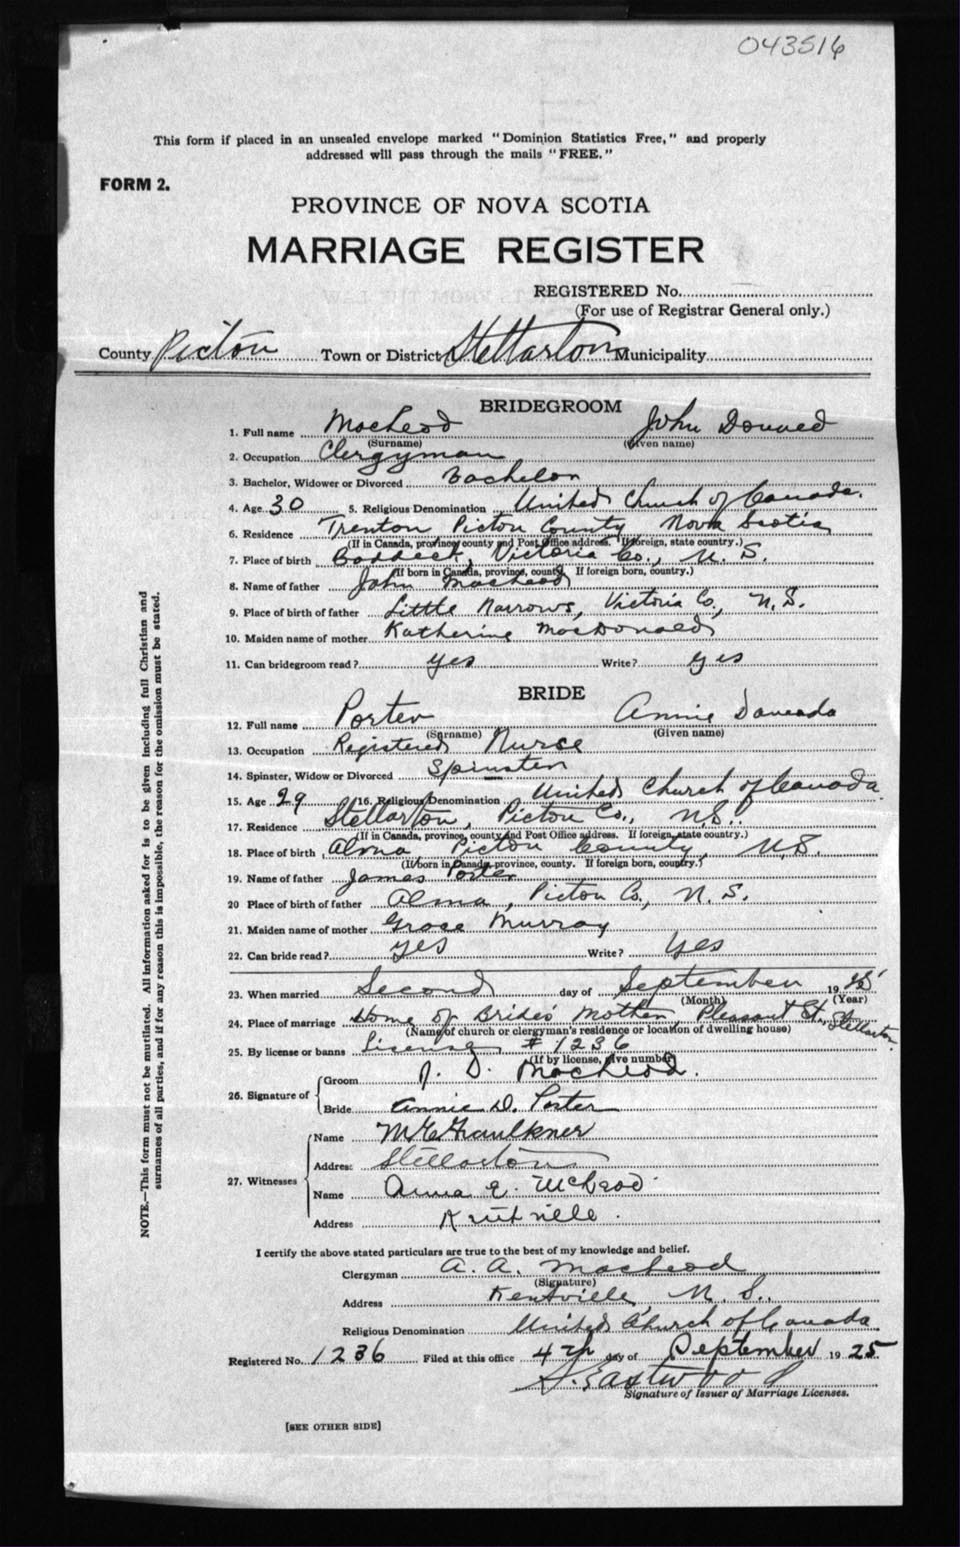 043516
This form if placed in an unsealed envelope marked "Dominion Statistics Free," and properly
addressed will pass through the mails "FREE."
FORM 2.
PROVINCE OF NOVA SCOTIA
MARRIAGE REGISTER
REGISTERED No.
(For use of Registrar General only.)
County Pictou Town or District Stellarton Municipality
BRIDEGROOM
1. Full name MacLeod John Donald
(Surname) (Given name)
2. Occupation Clergyman
3. Bachelor, Widower or Divorced Bachelor
4. Age 30 5. Religious Denomination United Church of Canada.
6. Residence Trenton Pictou County Nova Scotia
(If in Canada, province, county and Post Office address. If foreign, state country.)
7. Place of birth Baddeck, Victoria Co., N. S.
(If born in Canada, province, county. If foreign born, country.)
8. Name of father John MacLeod
9. Place of birth of father Little Narrows, Victoria Co., N. S.
10. Maiden name of mother Katherine MacDonald
11. Can bridegroom read? yes Write? yes
BRIDE
12. Full name Porter Annie
(Surname) (Given name)
13. Occupation Registered Nurse
14. Spinster, Widow or Divorced Spinster
15. Age 29 16. Religious Denomination United Church of Canada.
17. Residence Stellarton, Pictou Co., N.S.
(If in Canada, province, county and Post Office address. If foreign, state country.)
18. Place of birth Alma Pictou County, N.S.
(If born in Canada province, county. If foreign born, country.)
19. Name of father James Porter
20 Place of birth of father Alma, Pictou Co., N. S.
21. Maiden name of mother Grace Murray
22. Can bride read? yes Write? yes
23. When married Second day of September 1925
(Month) (Year)
24. Place of marriage Home of Bride's Mother, Pleasant St., Stellarton.
(Name of church or clergyman's residence or location of dwelling house)
25. By license or banns License # 1236
(If by license, give number)
26. Signature of Groom J. D. MacLeod.
Bride Annie D. Porter
27. Witnesses Name Faulkner
Address Stellarton
Name Anna E. McLeod
Address Kentville.
I certify the above stated particulars are true to the best of my knowledge and belief.
Clergyman A. A. MacLeod
(Signature)
Address Kentville, N. S.
Religious Denomination United Church of Canada
Registered No. 1236 Filed at this office 4th day of September 1925.
S. Eastwood
Signature of Issuer of Marriage Licenses.
[SEE OTHER SIDE]
NOTE.—This form must not be mutilated. All information asked for is to be given including full Christian and
surnames of all parties, and if for any reason this is impossible, the reason for the omission must be stated.